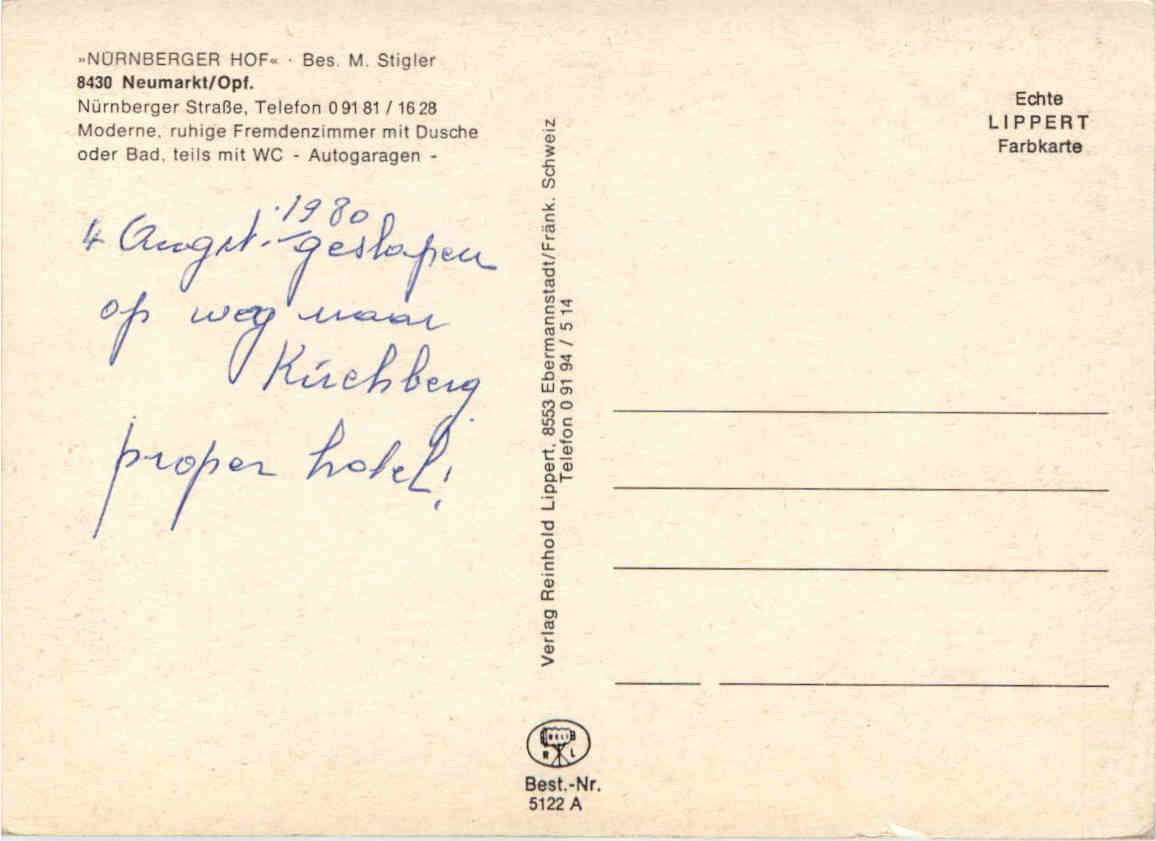 »NÜRNBERGER HOF« · Bes. M. Stigler
8430 Neumarkt/Opf.
Nürnberger Straße, Telefon 0 91 81 / 16 28
Moderne, ruhige Fremdenzimmer mit Dusche
oder Bad, teils mit WC - Autogaragen -
4 Augst. 1980 geslapen
op weg naar
Kirchberg
proper hotel!
Verlag Reinhold Lippert, 8553 Ebermannstadt/Fränk. Schweiz
Telefon 0 91 94 / 5 14
Echte
LIPPERT
Farbkarte
RELI
R L
Best.-Nr.
5122 A